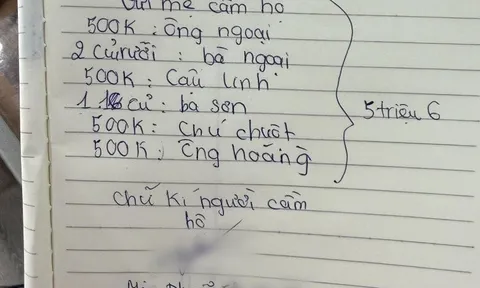 Gửi mẹ cầm hộ
500K : ông ngoại
2 củ rưỡi : bà ngoại
500K : Cậu Linh
1 củ : bà sơn
500K : Chú chuột
500K : Ông hoáng
5 triệu 6
Chữ kí người cầm
hộ